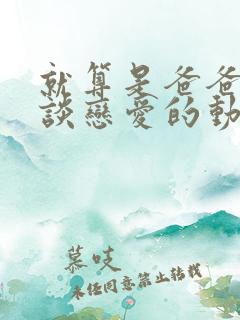 就算是爸爸
談戀愛的動
慕吱
未經同意禁止轉載